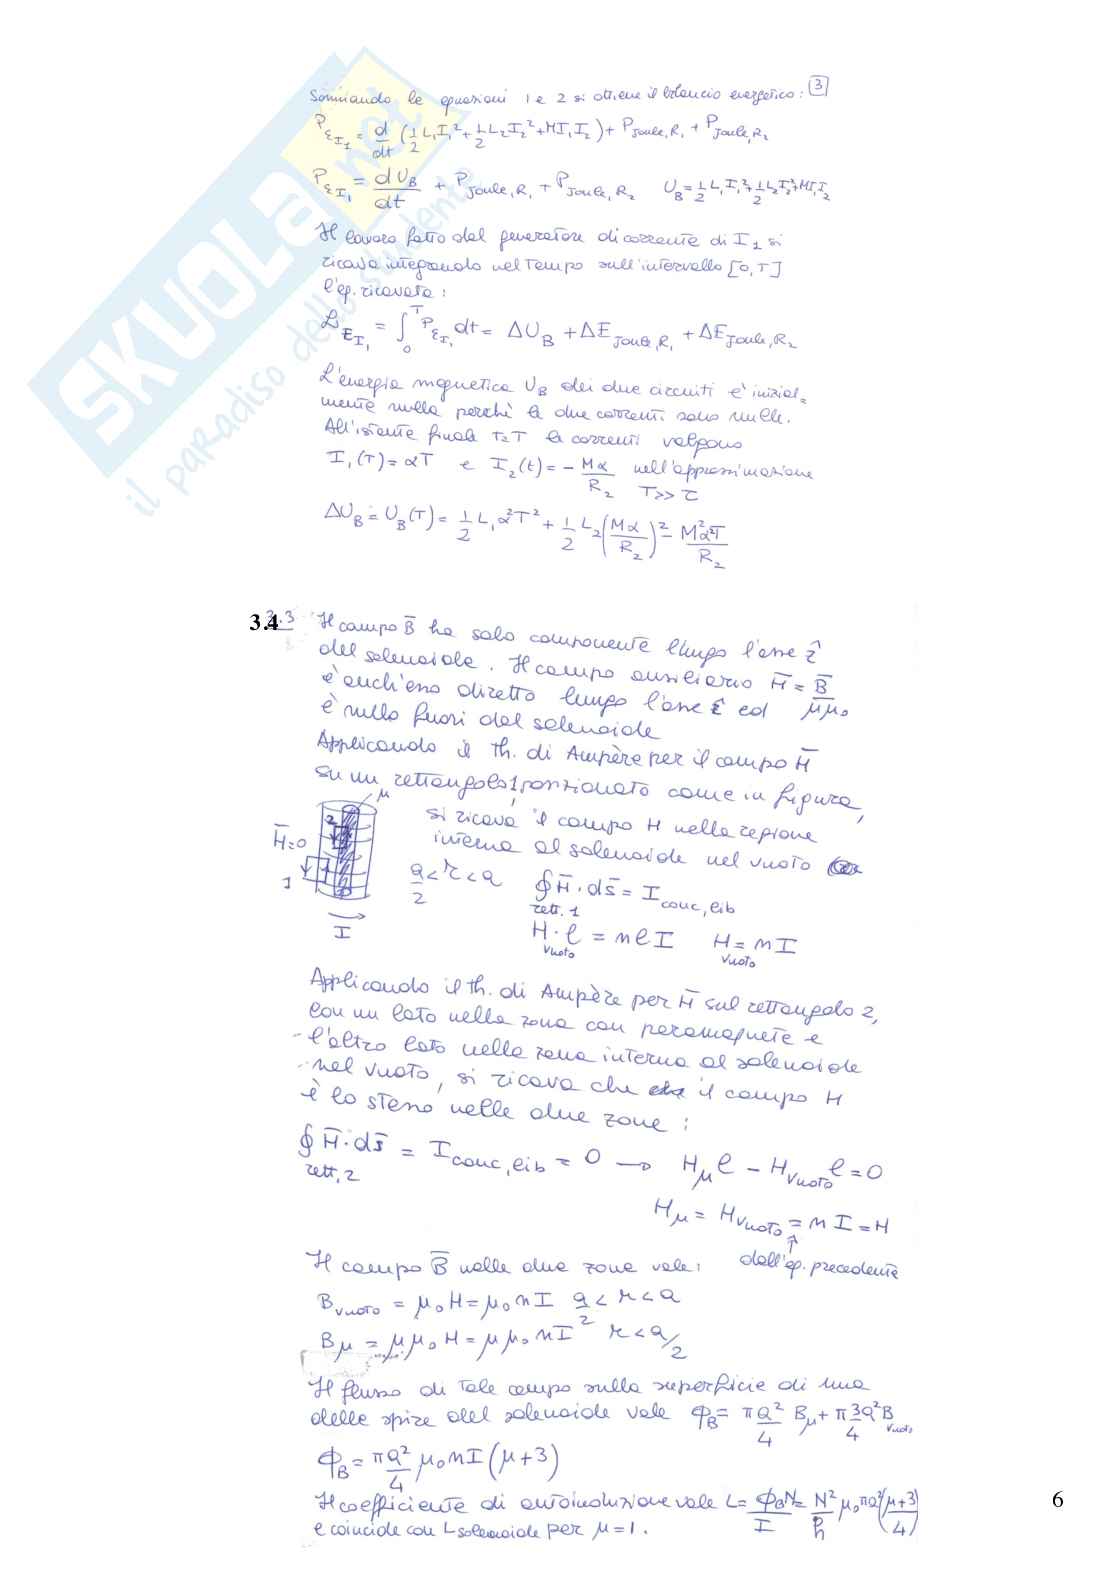 SKUOLA.net
il paradiso dello studente
3
Sommando le equazioni 1 e 2 si ottiene il bilancio energetico:
P_{ε_{I_1}} = d/dt (1/2 L_1 I_1^2 + 1/2 L_2 I_2^2 + M I_1 I_2) + P_{Joule, R_1} + P_{Joule, R_2}
P_{ε_{I_1}} = dU_B/dt + P_{Joule, R_1} + P_{Joule, R_2}   U_B = 1/2 L_1 I_1^2 + 1/2 L_2 I_2^2 + M I_1 I_2
Il lavoro fatto dal generatore di corrente di I_1 si
ricava integrando nel tempo sull'intervallo [0,T]
l'eq. ricavata:
L_{E_{I_1}} = ∫_0^T P_{ε_{I_1}} dt = ΔU_B + ΔE_{Joule, R_1} + ΔE_{Joule, R_2}
L'energia magnetica U_B dei due circuiti è inizial=
mente nulla perchè le due correnti sono nulle.
All'istante finale t=T le correnti valgono
I_1(T) = αT e I_2(t) = - Mα/R_2 nell'approssimazione
T>>τ
ΔU_B = U_B(T) = 1/2 L_1 α^2 T^2 + 1/2 L_2 (Mα/R_2)^2 - M^2 α^2 T/R_2
3.4 3.3 Il campo B̄ ha solo componente lungo l'asse ẑ
del solenoide. Il campo ausiliario H̄ = B̄/μμ_0
è anch'esso diretto lungo l'asse ẑ ed
è nullo fuori dal solenoide
Applicando il th. di Ampère per il campo H̄
su un rettangolo 1, posizionato come in figura,
si ricava il campo H nella regione
interna al solenoide nel vuoto
μ
2
H̄=0
1
I
a/2 < r < a   ∮_{rett. 1} H̄ · ds̄ = I_{conc, lib}
H_{vuoto} · l = n l I   H_{vuoto} = n I
Applicando il th. di Ampère per H̄ sul rettangolo 2,
con un lato nella zona con paramagnete e
l'altro lato nella zona interna al solenoide
nel vuoto, si ricava che il campo H
è lo stesso nelle due zone:
∮_{rett, 2} H̄ · ds̄ = I_{conc, lib} = 0 → H_μ l - H_{vuoto} l = 0
H_μ = H_{vuoto} = n I = H
↑
dall'eq. precedente
Il campo B̄ nelle due zone vale:
B_{vuoto} = μ_0 H = μ_0 n I   a/2 < r < a
B_μ = μμ_0 H = μμ_0 n I   r < a/2
Il flusso di tale campo sulla superficie di una
delle spire del solenoide vale Φ_B = πa^2/4 B_μ + π 3a^2/4 B_{vuoto}
Φ_B = πa^2/4 μ_0 n I (μ+3)
Il coefficiente di autoinduzione vale L = Φ_B N/I = N^2/h μ_0 πa^2 (μ+3/4)
e coincide con L solenoide per μ=1.
6